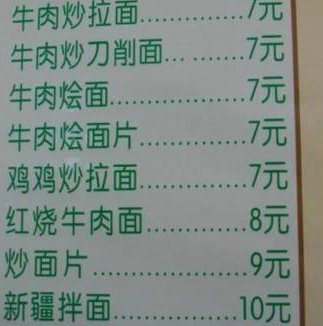 牛肉炒拉面............7元
牛肉炒刀削面... ......7元
牛肉烩面...............7元
牛肉烩面片............7元
鸡鸡炒拉面............7元
红烧牛肉面............8元
炒面片..................9元
新疆拌面...............10元